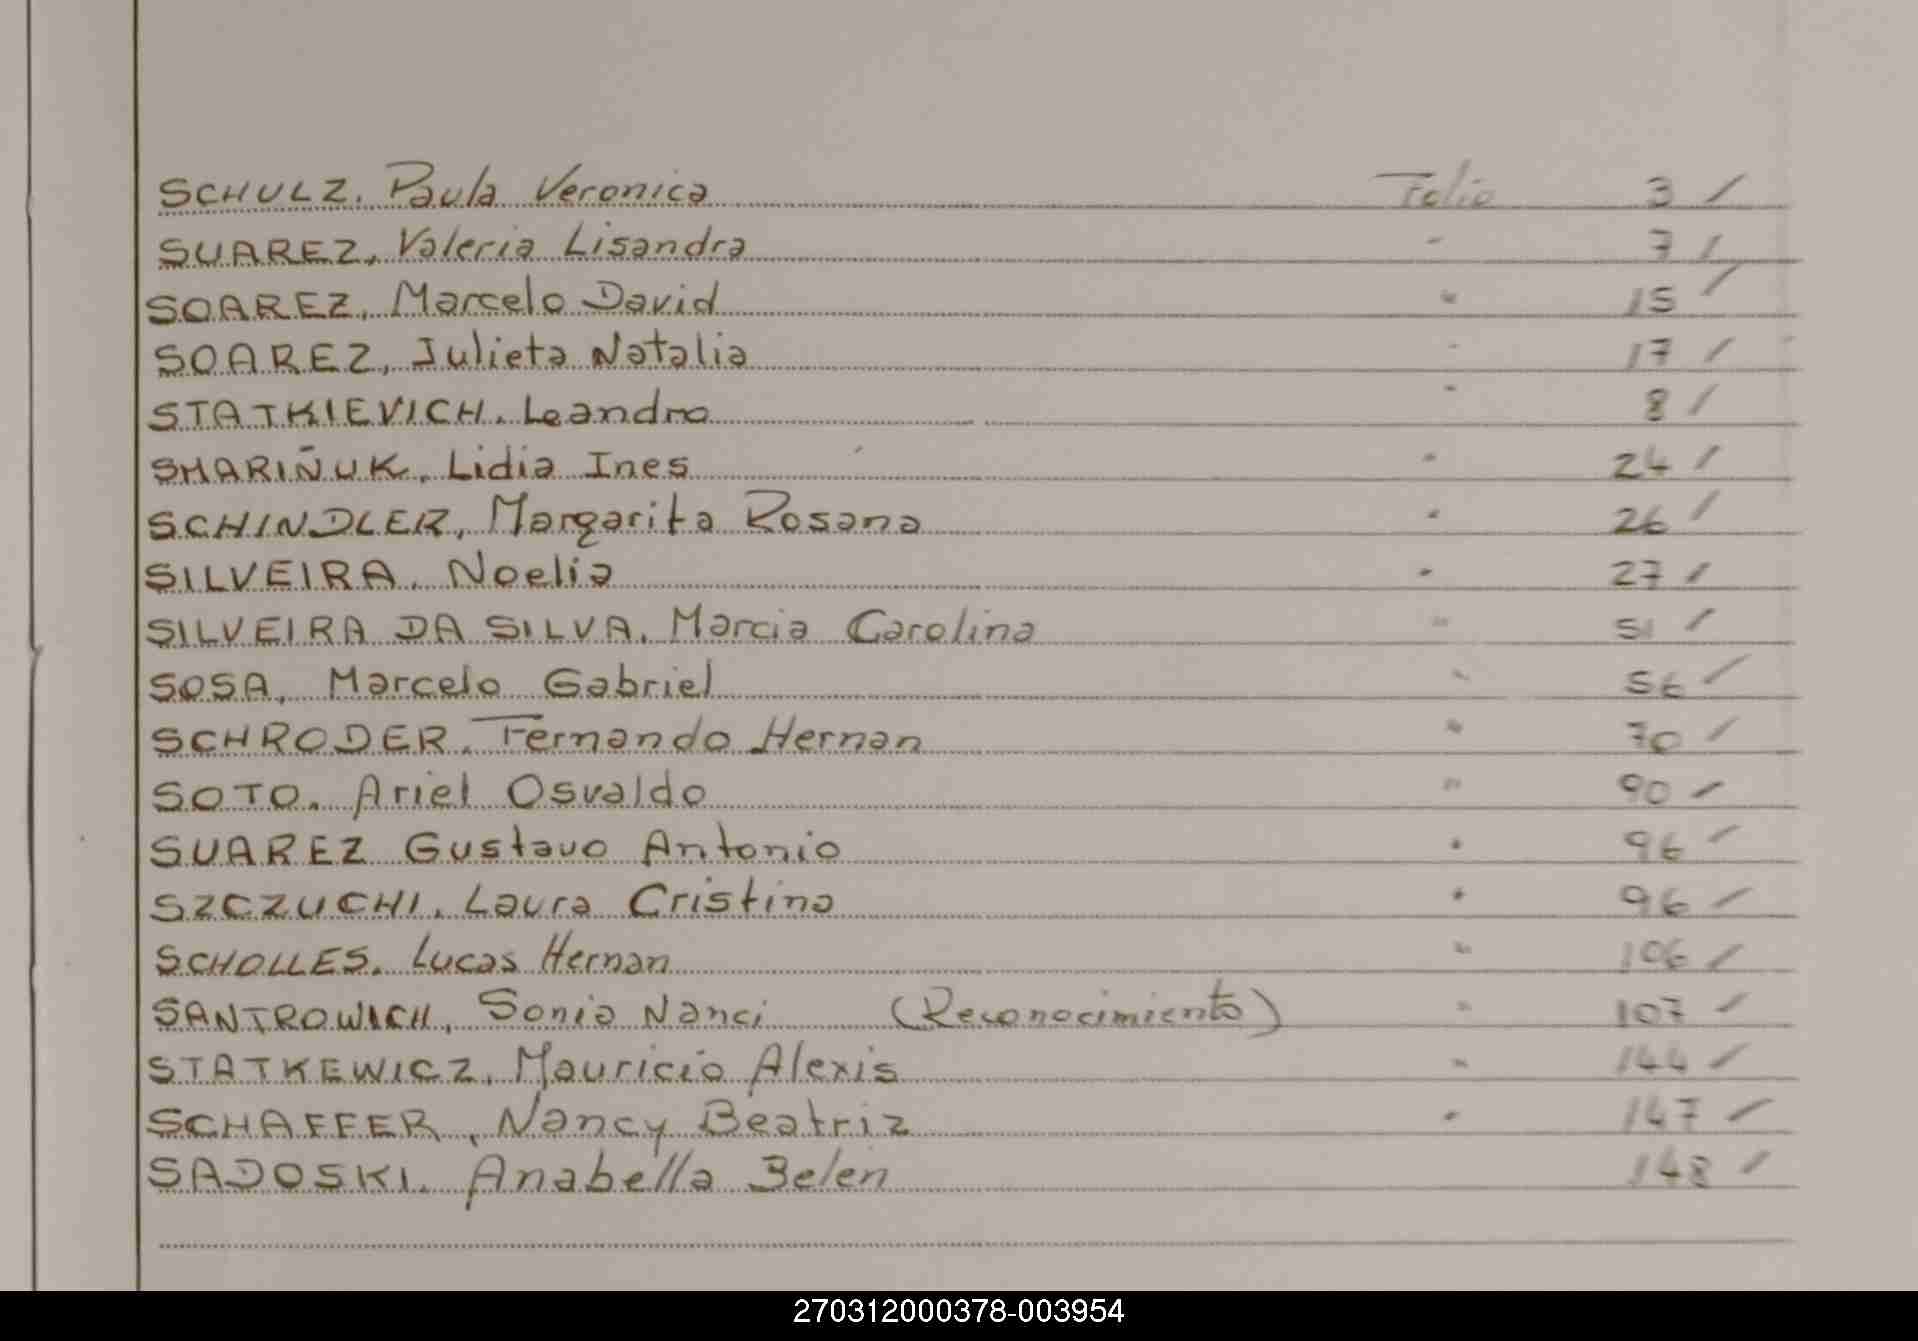 SCHULZ. Paula Veronica Folio 3 /
SUAREZ, Valeria Lisandra " 7 /
SOAREZ, Marcelo David " 15 /
SOAREZ, Julieta Natalia " 17 /
STATKIEVICH. Leandro " 8 /
SMARIÑUK. Lidia Ines " 24 /
SCHINDLER, Margarita Rosana " 26 /
SILVEIRA. Noelia " 27 /
SILVEIRA DA SILVA. Marcia Carolina " 51 /
SOSA, Marcelo Gabriel " 56 /
SCHRODER. Fernando Hernan " 70 /
SOTO. Ariel Osvaldo " 90 /
SUAREZ Gustavo Antonio " 96 /
SZCZUCHI. Laura Cristina " 96 /
SCHOLLES. Lucas Hernan " 106 /
SANTROWICH, Sonia Nanci (Reconocimiento) " 107 /
STATKEWICZ, Mauricio Alexis " 144 /
SCHAFFER, Nancy Beatriz " 147 /
SADOSKI. Anabella Belen 148 /
270312000378-003954